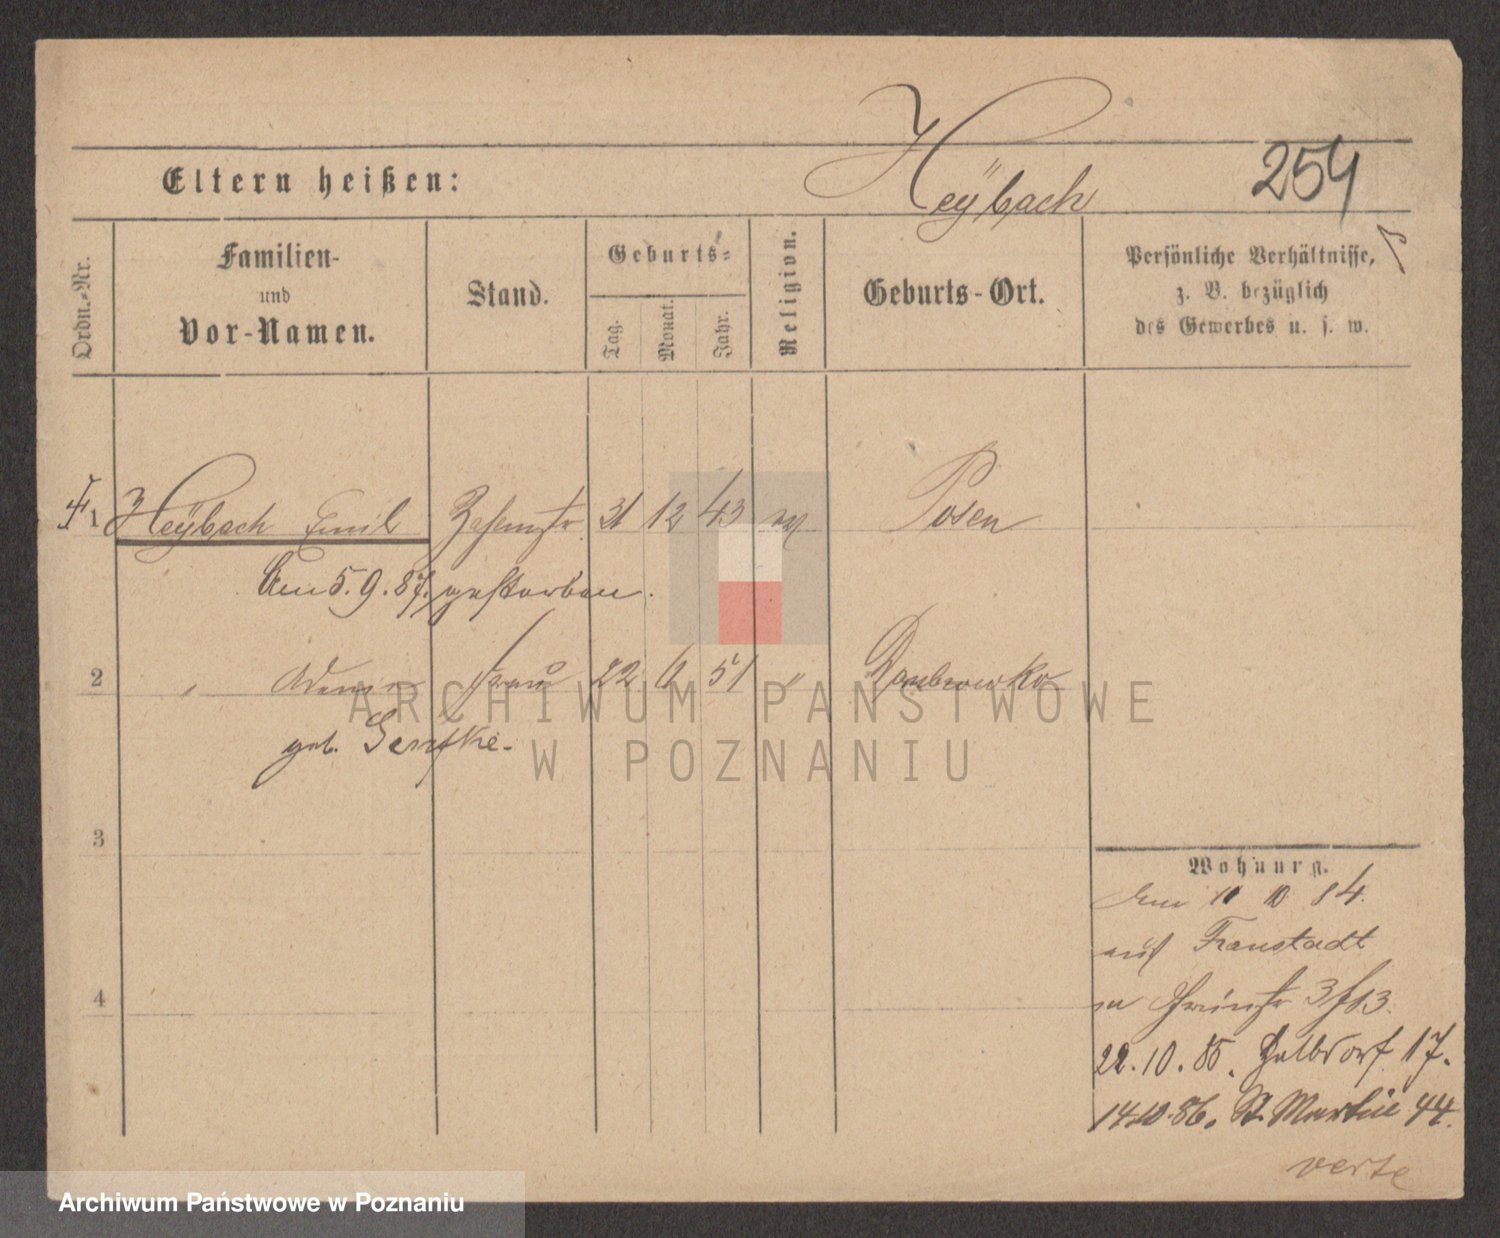 Heÿbach 254
Eltern heißen:
Ordn.-Nr.
Familien- und Vor-Namen.
Stand.
Geburts-
Tag.
Monat.
Jahr.
Religion.
Geburts-Ort.
Persönliche Verhältnisse, z. B. bezüglich des Gewerbes u. s. w.
1 Heÿbach Emil 31 12 43 Posen
Am 5.9.87. gestorben.
2 " Frau 22 6 51 " Dombrowko
geb.
3
4
Wohnung.
Am 11 10 84.
aus Fraustadt
3/13.
22.10.85. Halbdorf 17.
14.10.86. St. Martin 44.
verte
ARCHIWUM PAŃSTWOWE
W POZNANIU
Archiwum Państwowe w Poznaniu